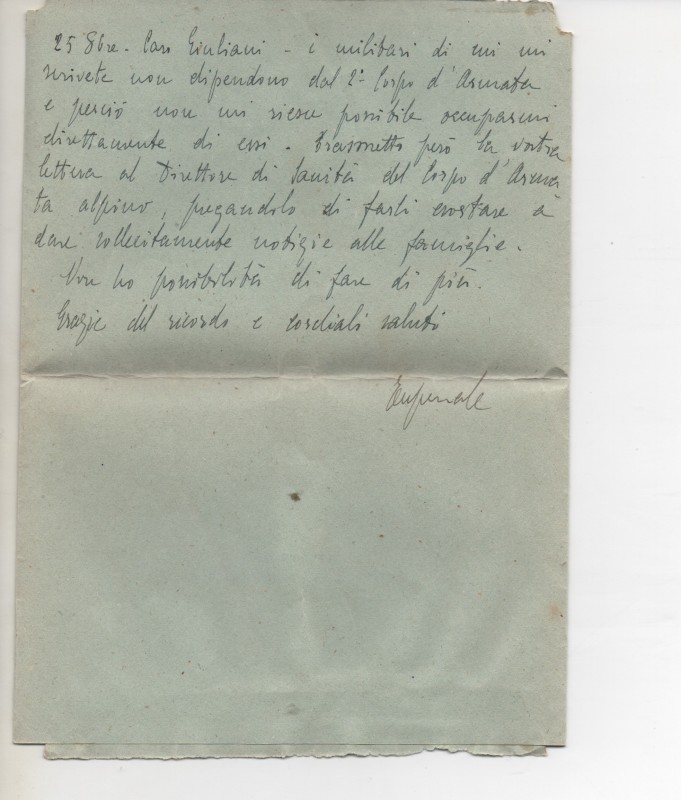 25 8bre - Caro Giuliani - i militari di cui mi
scrivete non dipendono dal 2° Corpo d'Armata
e perciò non mi riesce possibile occuparmi
direttamente di essi - Trasmetto però la vostra
lettera al Direttore di Sanità del Corpo d'Arma
ta alpino, pregandolo di farli esortare a
dare sollecitamente notizie alle famiglie.
Non ho possibilità di fare di più.
Grazie del ricordo e cordiali saluti